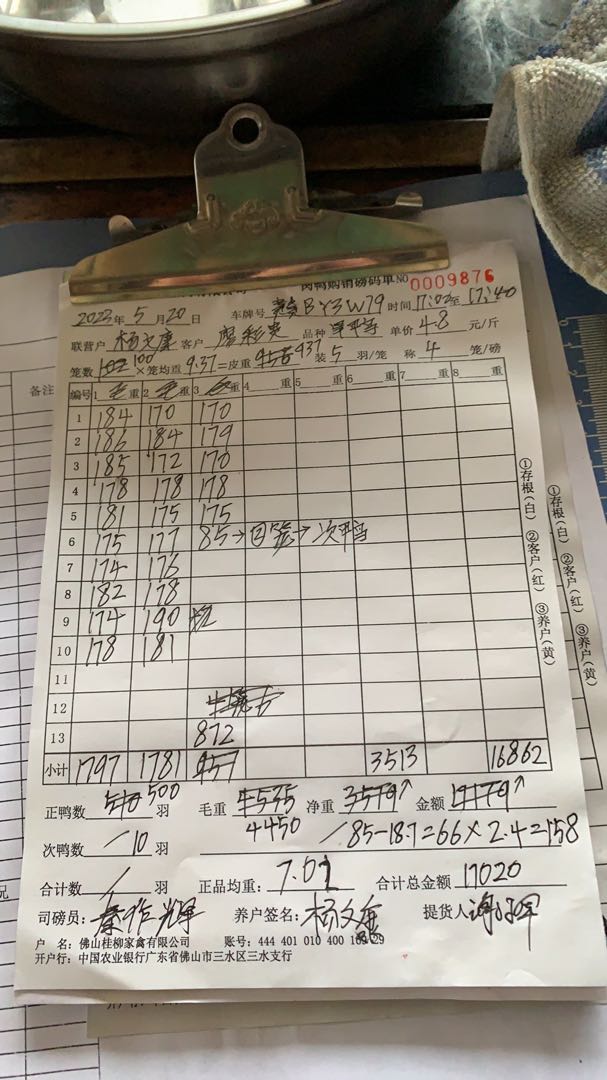 肉鸭购销磅码单 NO 0009876
2023年 5月 20日 车牌号 BY3W79 时间 17:02至 17:40
联营户 杨文 客户 廖 品种 单价 4.8 元/斤
笼数 102 100 ×笼均重 9.37=皮重 956 937 装 5 羽/笼 称 4 笼/磅
编号 1 毛重 2 毛重 3 毛重 4 重 5 重 6 重 7 重 8 重
1 184 170 170
2 186 184 179
3 185 172 170
4 178 178 178
5 181 175 175
6 175 177 85→回笼→次鸭
7 174 176
8 182 178
9 174 190
10 178 181
11
12
13 872
小计 1797 1781 957 3513 16862
正鸭数 510 500 羽 毛重 4535 4450 净重 3579 金额 17179
次鸭数 10 羽 85-18.7=66×2.4=158
合计数 羽 正品均重: 7.02 合计总金额 17020
司磅员: 秦作辉 养户签名: 杨文 提货人
户 名: 佛山桂柳家禽有限公司 账号: 444 401 010 400 29
开户行: 中国农业银行广东省佛山市三水区三水支行
①存根(白) ②客户(红) ③养户(黄)
①存根(白) ②客户(红) ③养户(黄)
备注